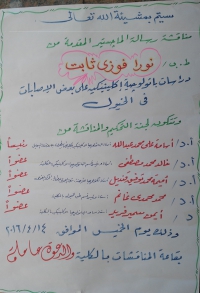 سيتم بمشيئة الله تعالى
مناقشة رسالة الماجستير المقدمة من
ط.ب/ نورا فوزى ثابت
دراسات باثولوجية إكلينيكية على بعض الإصابات
فى الخيول
وستكون لجنة التحكيم والمناقشة من
أ.د/ أسامة على محمد عبدالله رئيساً
أ.د/ خالد محمد مصطفى عضواً
أ.د/ عضواً
أ.د/ محمد عضواً
د/ أيمن سمير فريد عضواً
وذلك يوم الخميس الموافق ٢٠١٦/٤/١٤
بقاعة المناقشات بالكلية والدعوة عامة